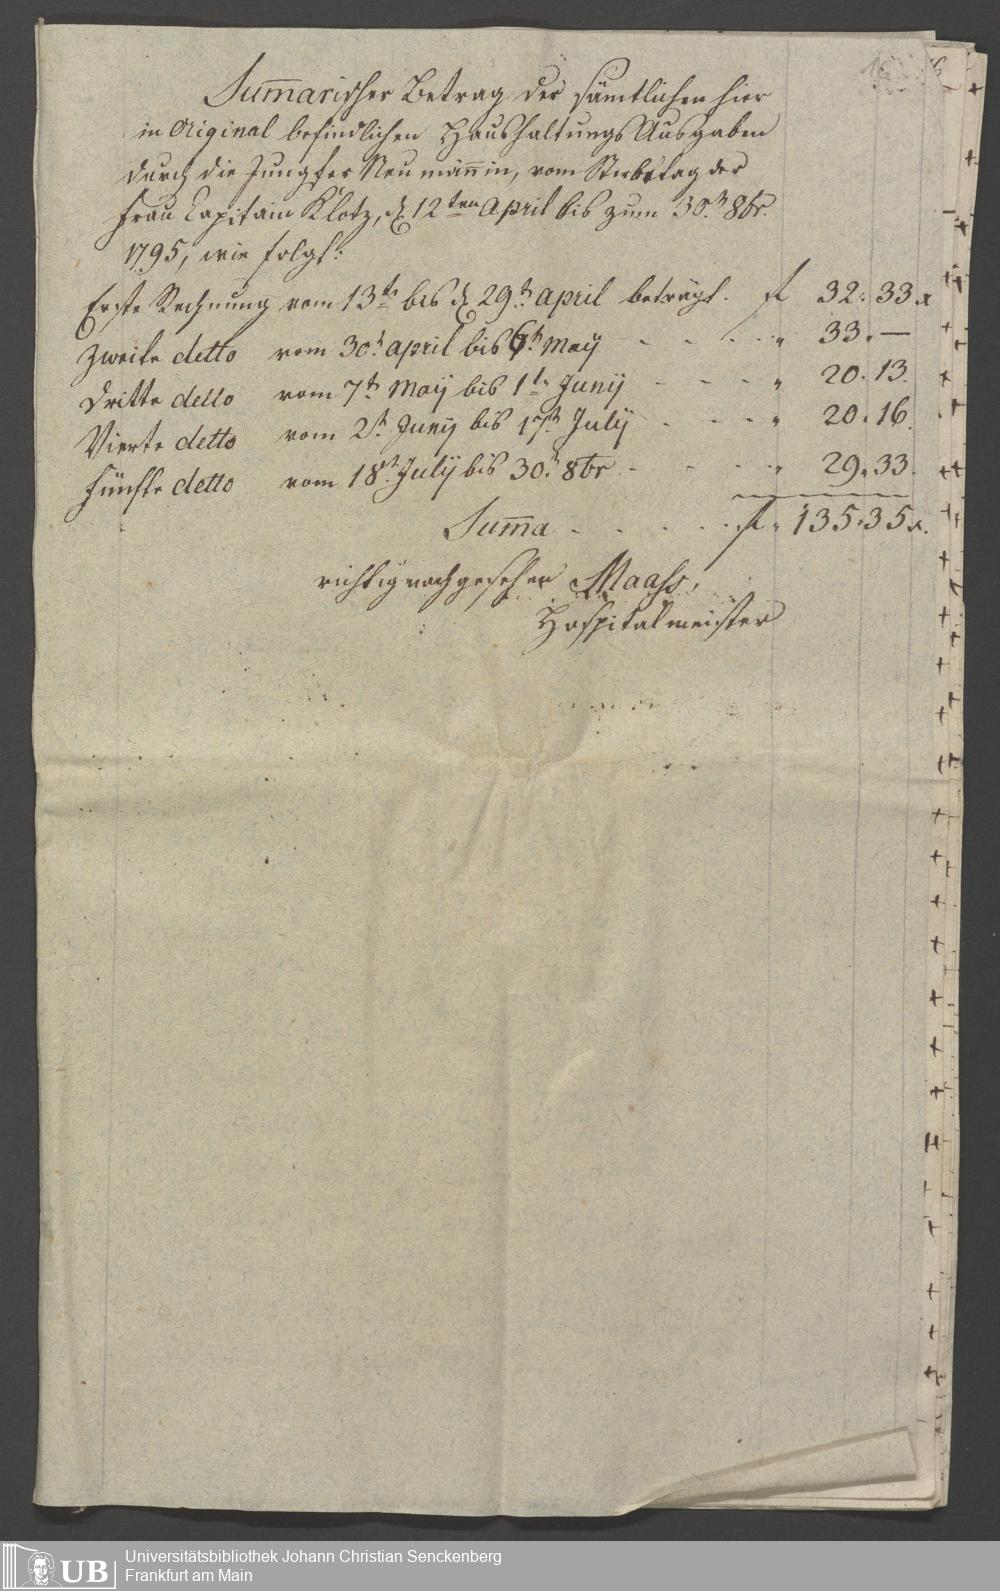 Sum̄arischer Betrag der sämtlichen hier
in Original befindlichen Haushaltungs Ausgaben
durch die Jungfer Neumän̄in, vom Sterbetag der
Frau Capitain Klotz, d. 12ten April bis zum 30t. 8br.
1795, wie folgt:
Erste Rechnung vom 13t. bis d. 29t. April beträgt. f 32. 33 x
Zweite detto vom 30t. April bis 6t. Maÿ - - - - " 33. —
Dritte detto vom 7t. Maÿ bis 1t. Junÿ - - - - " 20. 13.
Vierte detto vom 2t. Junÿ bis 17t. Julÿ - - - - " 20. 16.
Fünfte detto vom 18t. Julÿ bis 30t. 8br - - - - " 29. 33.
Sum̄a - - - - - f. 135. 35 x.
richtig nachgesehen Maass,
Hospitalmeister
UB
Universitätsbibliothek Johann Christian Senckenberg
Frankfurt am Main